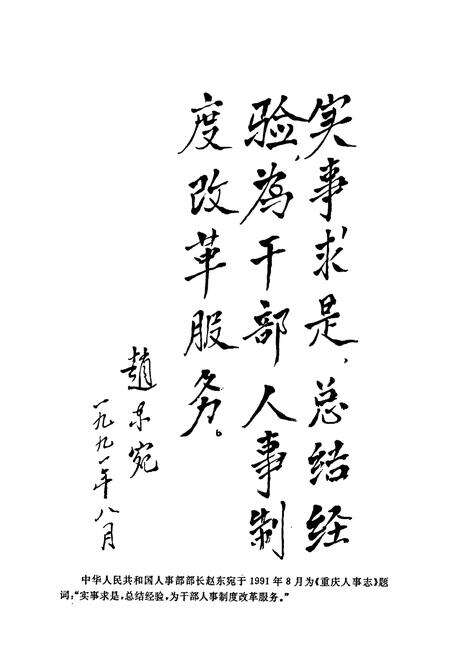 实事求是,总结经
验,為干部人事制
度改革服务。
趙东宛
一九九一年八月
中华人民共和国人事部部长赵东宛于1991年8月为《重庆人事志》题
词:“实事求是,总结经验,为干部人事制度改革服务。”